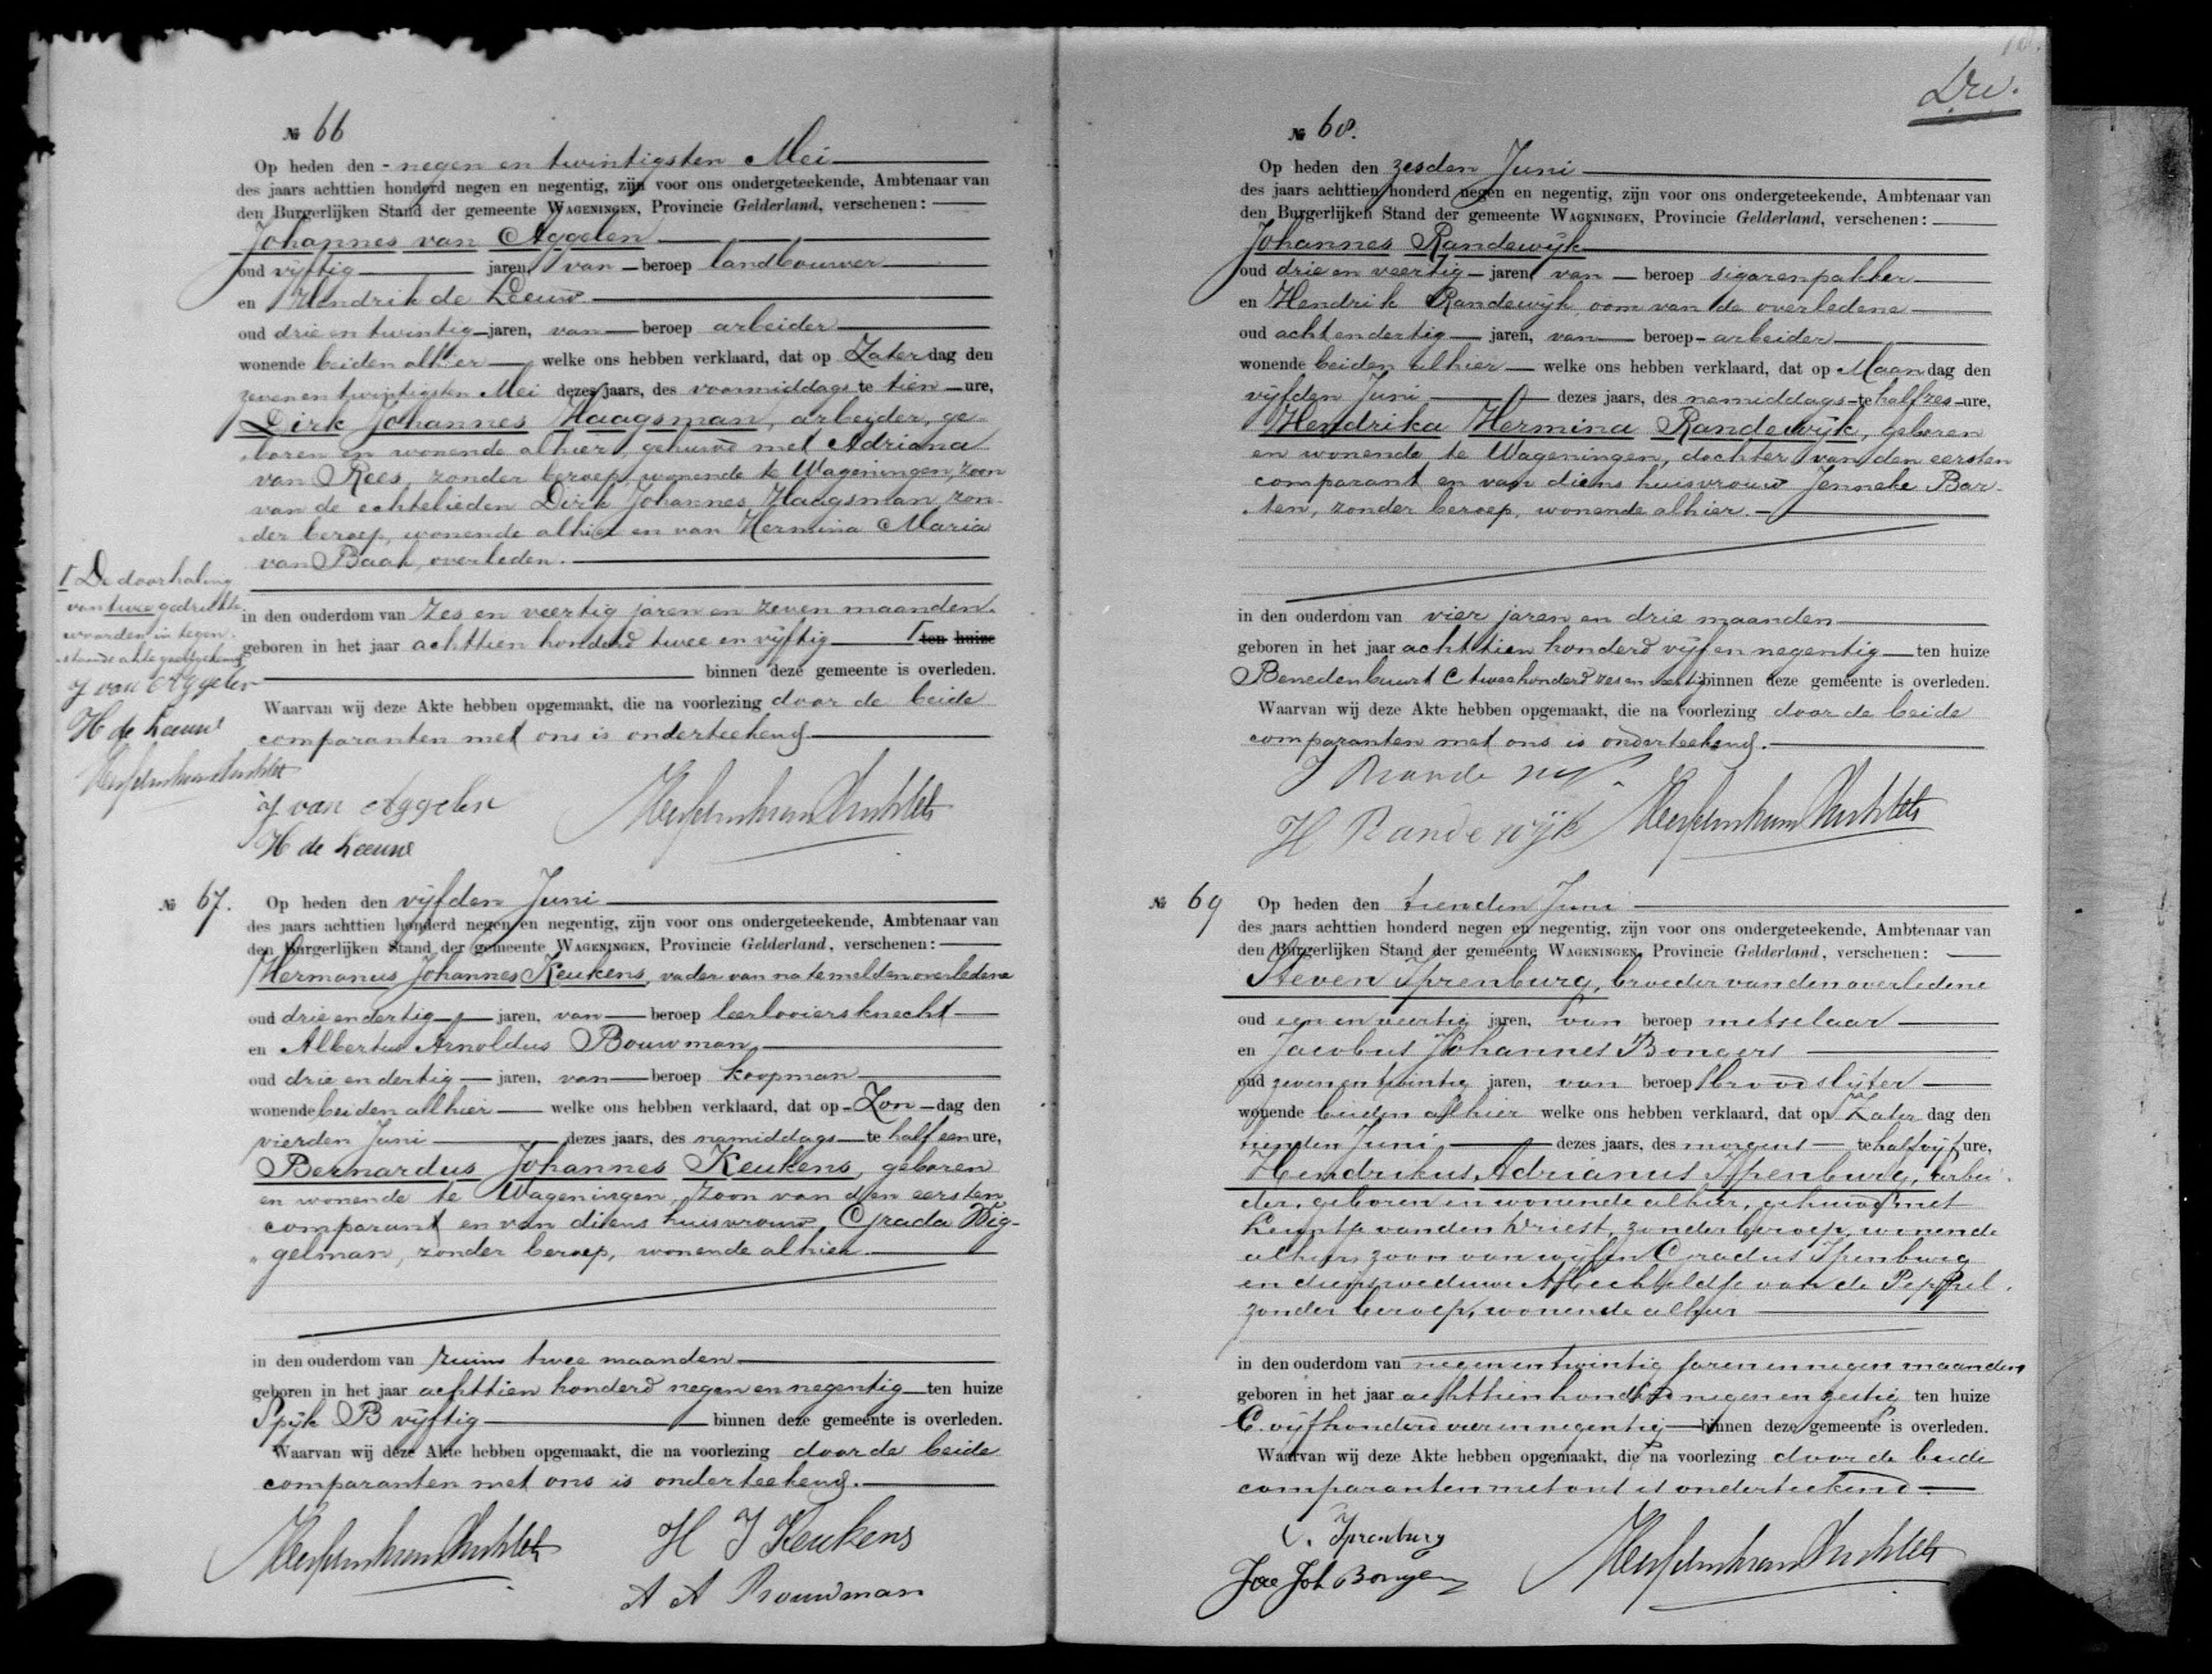 Drv.
№ 66
Op heden den - negen en twintigsten Mei
des jaars achttien honderd negen en negentig, zijn voor ons ondergeteekende, Ambtenaar van
den Burgerlijken Stand der gemeente WAGENINGEN, Provincie Gelderland, verschenen:
Johannes van Aggelen
oud vijftig jaren, van beroep landbouwer
en Hendrik de Leeuw
oud drie en twintig jaren, van beroep arbeider
wonende beiden alhier welke ons hebben verklaard, dat op Zaterdag den
zeven en twintigsten Mei dezes jaars, des voormiddags te tien ure,
Dirk Johannes Haagsman, arbeider, ge-
boren en wonende alhier, gehuwd met Adriana
van Rees, zonder beroep, wonende te Wageningen, zoon
van de echtelieden Dirk Johannes Haagsman, zon-
der beroep, wonende alhier en van Hermina Maria
van Baak, overleden.
in den ouderdom van zes en veertig jaren en zeven maanden.
geboren in het jaar achttien honderd twee en vijftig ten huize
binnen deze gemeente is overleden.
Waarvan wij deze Akte hebben opgemaakt, die na voorlezing door de beide
comparanten met ons is onderteekend.
De doorhaling
van twee gedrukte
woorden in tegen-
staande akte goedgekeurd
J van Aggelen
H de Leeuw
J van Aggelen
H de Leeuw
№ 67. Op heden den vijfden Juni
des jaars achttien honderd negen en negentig, zijn voor ons ondergeteekende, Ambtenaar van
den Burgerlijken Stand der gemeente WAGENINGEN, Provincie Gelderland, verschenen:
Hermanus Johannes Keukens, vader van na te melden overledene
oud drie en dertig jaren, van beroep leerlooiersknecht
en Albertus Arnoldus Bouwman,
oud drie en dertig jaren, van beroep koopman
wonende beiden alhier welke ons hebben verklaard, dat op Zondag den
vierden Juni dezes jaars, des namiddags te half een ure,
Bernardus Johannes Keukens, geboren
en wonende te Wageningen, zoon van den eersten
comparant en van diens huisvrouw, Grada Wig-
gelman, zonder beroep, wonende alhier
in den ouderdom van ruim twee maanden
geboren in het jaar achttien honderd negen en negentig ten huize
Spijk B vijftig binnen deze gemeente is overleden.
Waarvan wij deze Akte hebben opgemaakt, die na voorlezing door de beide
comparanten met ons is onderteekend.
H J Keukens
A A Bouwman
№ 68.
Op heden den zesden Juni
des jaars achttien honderd negen en negentig, zijn voor ons ondergeteekende, Ambtenaar van
den Burgerlijken Stand der gemeente WAGENINGEN, Provincie Gelderland, verschenen:
Johannes Randewijk
oud drie en veertig jaren, van beroep sigarenpakker
en Hendrik Randewijk, oom van de overledene
oud acht en dertig jaren, van beroep - arbeider
wonende beiden alhier welke ons hebben verklaard, dat op Maandag den
vijfden Juni dezes jaars, des namiddags te half zes ure,
Hendrika Hermina Randewijk, geboren
en wonende te Wageningen, dochter van den eersten
comparant en van diens huisvrouw Jenneke Bar-
ten, zonder beroep, wonende alhier.
in den ouderdom van vier jaren en drie maanden
geboren in het jaar achttien honderd vijf en negentig ten huize
Benedenbuurt C tweehonderd zes en veertig binnen deze gemeente is overleden.
Waarvan wij deze Akte hebben opgemaakt, die na voorlezing door de beide
comparanten met ons is onderteekend.
H Randewijk
№ 69 Op heden den tienden Juni
des jaars achttien honderd negen en negentig, zijn voor ons ondergeteekende, Ambtenaar van
den Burgerlijken Stand der gemeente WAGENINGEN, Provincie Gelderland, verschenen:
Steven Iprenburg, broeder van den overledene
oud een en veertig jaren, van beroep metselaar
en Jacobus Johannes Bongers
oud zeven en twintig jaren, van beroep broodslijter
wonende beiden alhier welke ons hebben verklaard, dat op Zaterdag den
tienden Juni dezes jaars, des morgens te half vijf ure,
Hendrikus Adrianus Iprenburg, arbei-
der, geboren en wonende alhier, gehuwd met
van den Driest, zonder beroep, wonende
alhier, zoon van wijlen Gradus Iprenburg
en diens weduwe Mechteldje van de Peppel.
zonder beroep, wonende alhier
in den ouderdom van negen en twintig jaren en negen maanden,
geboren in het jaar achttienhonderd negen en zestig ten huize
C. vijfhonderd vier en negentig binnen deze gemeente is overleden.
Waarvan wij deze Akte hebben opgemaakt, die na voorlezing door de beide
comparanten met ons is onderteekend.
Iprenburg
Jac Joh Bongers